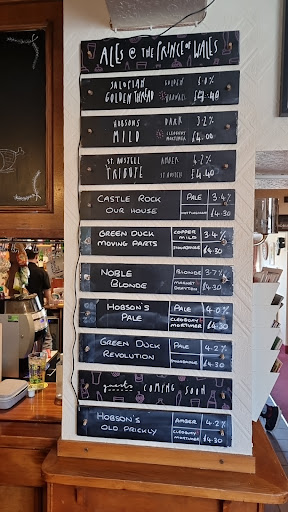 ALES @ THE PRINCE OF WALES
SALOPIAN GOLDEN 5·0%
GOLDEN THREAD £4·40
HOBSONS DARK 3·2%
MILD CLEOBURY MORTIMER £4·00
ST. AUSTELL AMBER 4·2%
TRIBUTE ST AUSTELL £4·40
CASTLE ROCK PALE 3·4%
OUR HOUSE NOTTINGHAM £4·30
GREEN DUCK COPPER MILD 3·4%
MOVING PARTS STOURBRIDGE £4·30
NOBLE BLONDE 3·7%
BLONDE MARKET DRAYTON £4·30
HOBSON'S PALE 4·0%
PALE CLEOBURY MORTIMER £4·30
GREEN DUCK PALE 4·2%
REVOLUTION STOURBRIDGE £4·30
guests COMING SOON
HOBSON'S AMBER 4·2%
OLD PRICKLY CLEOBURY MORTIMER £4·30